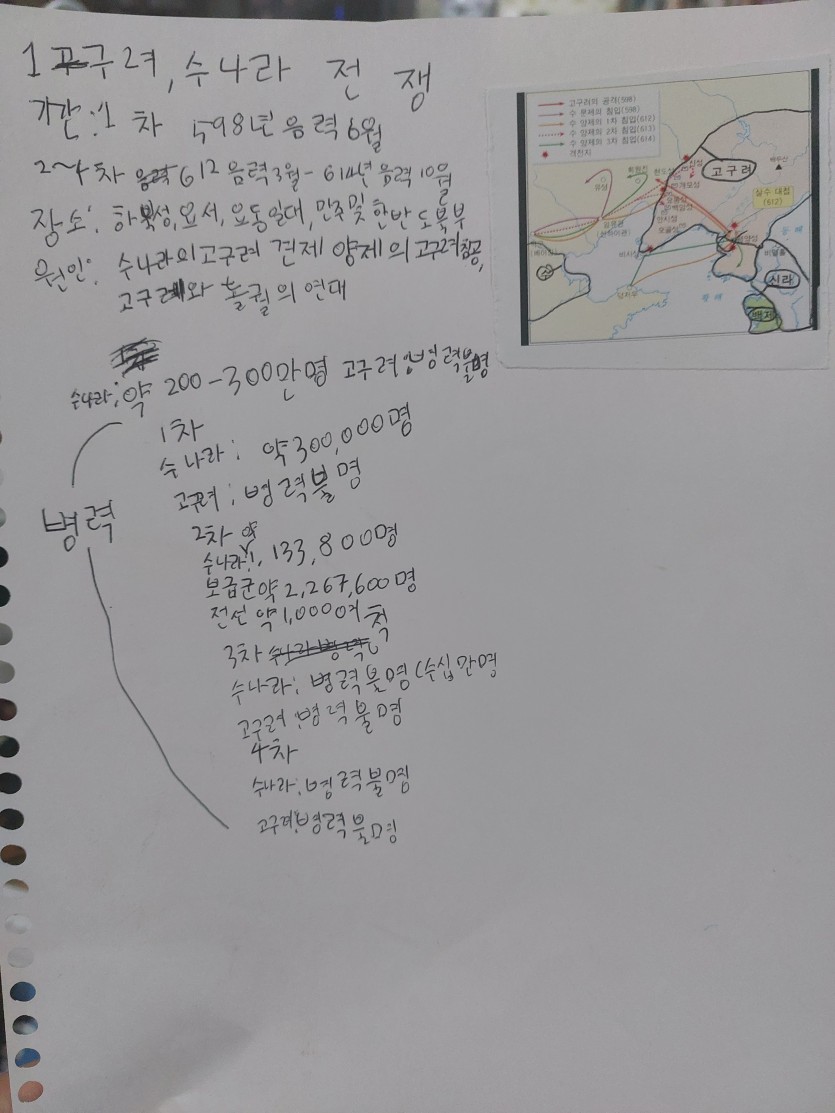 1 구려, 수나라 전쟁
기간:1차 598년 음력 6월
2~4차 612 음력 3월 - 614년 음력 10월
장소: 하북성, 요서, 요동일대, 만주 및 한반도 북부
원인: 수나라의 고구려 견제 양제의 고구려 침공,
고구려와 돌궐의 연대
수나라: 약 200-300만명 고구려:병력불명
병력
1차
수나라: 약 300,000명
고구려: 병력불명
2차 약
수나라:1,133,800명
보급군약 2,267,600명
전선 약 1,0000여 척
3차
수나라: 병력불명 (수십만명
고구려:병력불명
4차
수나라:병력불명
고구려:병력불명
고구려의 공격(598)
수 문제의 침입(598)
수 양제의 1차 침입(612)
수 양제의 2차 침입(613)
수 양제의 3차 침입(614)
격전지
고구려
백두산
신성
현도성
개모성
요동성
백암성
안시성
오골성
비사성
유성
임유관
살수 대첩
(612)
평양성
비열홀
동해
황해
수
신라
백제